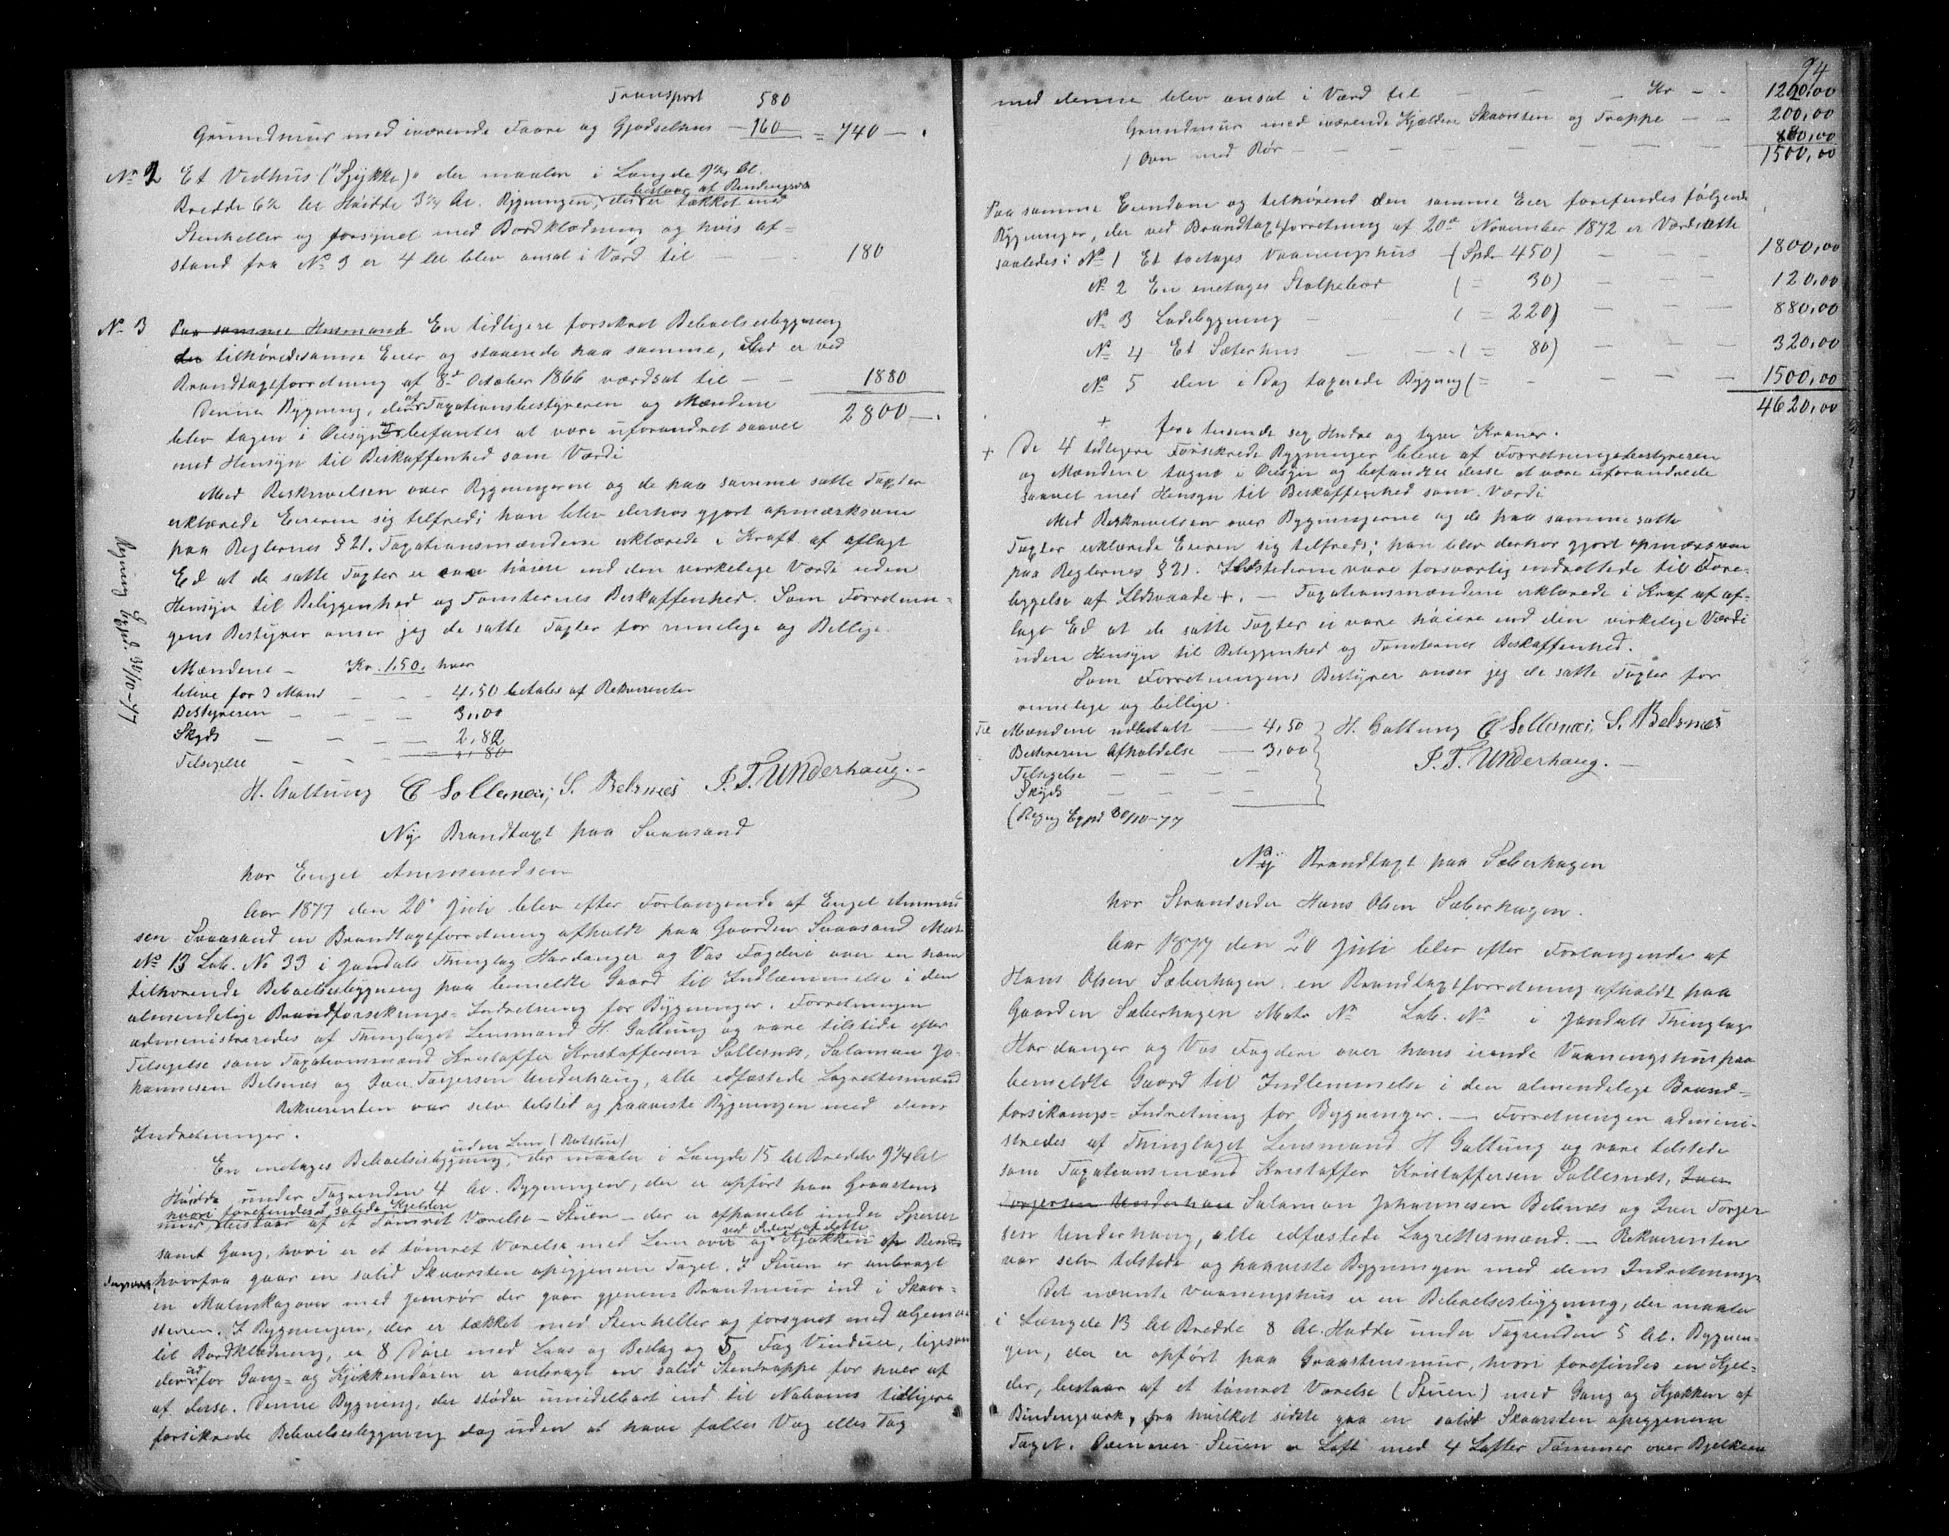 Transport 580
Grundmur med iværende Faare og Gjødselhus — 160 = 740 — .
No 2 Et Vedhus ("Skjykke)" der maaler i Længde 9 1/4 Al.
Bredde 6 1/2 Al Høide 3 3/4 Al. Bygningen, bestaar af Bindingsværk der er tækket med
Stenheller og forsynet med Bordklædning og hvis af=
stand fra No 3 er 4 Al blev ansat i Værd til — 180
No 3 Paa samme Husmands En tidligere forsikret Beboelsesbygning
der tilhørende samme Eier og staaende paa samme, Sted er ved
Brandtagtforretning af 8de October 1866 værdsat til — — 1880
Denne Bygning, der af Taxationsbestyreren og Mændene 2800 — .
blev tagen i Øiesyn befantes at være uforandret saavel
med Hensyn til Beskaffenhed som Værdi
Med Beskrivelsen over Bygningerne og de paa samme satte Taxter
erklærede Eieren sig tilfreds; han blev derhos gjort opmærksom
paa Reglernes § 21. Taxationsmændene erklærede i Kraft af aflagt
Ed at de satte Taxter er høiere end den virkelige Værdi uden
Hensyn til Beliggenhed og Tomternes Beskaffenhed. Som Forretnin=
gens Bestyrer anser jeg de satte Taxter for rimelige og Billige.
Mændene — Kr. 1.50. hver
bliver for 3 Mand — — 4,50 betales af Rekvirenten
Bestyreren — — — 3,00
Skyds — — — 2,82
Tilsigelse — — 80
H. Galtung C Sollesnæs, S. Belsnæs J. T. Underhaug. —
Regning Expd. 30/10-77
Ny Brandtaxt paa Svaasand
hos Engel Ammundsen
Aar 1877 den 20de Juli blev efter Forlangende af Engel Ammund
sen Svaasand en Brandtagtforretning afholdt paa Gaarden Svaasand Matr
No 13 Lob. No 33 i Jondals Thinglag Hardanger og Vos Fogderi over en ham
tilhørende Beboelsesbygning paa bemeldte Gaard til Indlemmelse i den
almindelige Brandforsikrings= Indretning for Bygninger. Forretningen
administreredes af Thinglagets Lensmand H. Galtung og vare tilstede efter
Tilsigelse som Taxationsmænd Kristoffer Kristoffersen Sollesnæs, Salamon Jo=
hannesen Belsnæs og Iver Torjersen Underhaug, alle edfæstede Lagrettesmænd
Rekvirenten var selv tilsted og paaviste Bygningen med dens
Indretninger.
En enetages Beboelsesbygning, uden Lem (Ratstue) der maaler i Længde 15 Al Bredde 9 1/4 Al
Høide under Tagrenden 4 Al. Bygningen, der er opført paa Graastens
mur, hvori forefindes 1 solid Kjelder bestaar af et Tømret Værelse — Stuen — der er afpanelet under Sperrer
samt Gang, hvori er et tømret Værelse med Lem over og Kjøkken ved Siden af dette af Bind=
ingsværk, hvorfra gaar en solid Skaarsten opigjenem Taget. I Stuen er anbragt
en Malmkagovn med Jernrør der gaar gjenem Brandmur ind i Skaar=
stenen. I Bygningen, der er tækket med Stenheller og forsynet med
Bordklædning, er 8 Døre med Laas og Beslag og 5 Fag Vinduer, ligesom
der udfor Gang= og Kjøkkendøren er anbragt en solid Stentrappe for hver af
af disse. Denne Bygning, der støder umidelbart ind til Naboens tidligere
forsikrede Beboelsesbygning dog uden at have fælles Væg eller Tag
94
med denne blev ansat i Værd til — — — Kr — — 1200,00
Grundmur med iværende Kjælder Skaarsten og Trappe — — 200,00
1 Ovn med Rør — — — — — — 100,00
1500,00
Paa samme Eiendom og tilhørend den samme Eier forefindes følgende
Bygninger, der ved Brandtagtforretning af 20de November 1872 er Værdsatte
saaledes: No 1 Et toetages Vaaningshus (Spd 450) — — 1800,00
No 2 En enetages Stolpebod ( = 30) — — 120,00
No 3 Ladebygning — ( = 220) 880,00
No 4 Et Sæterhus — — ( = 80) — — — 320,00
No 5 den i Dag taxerede Bygning ( = — — — — 1500,00
4620,00
+ fire tusende sex Hundre og tyve Kroner.
+ De 4 tidligere Forsikrede Bygninger bleve af Forretningsbestyreren
og Mændene tagne i Øiesyn og befandtes disse at være uforandrede
saavel med Hensyn til Beskaffenhed som Værdi
Med Beskrivelsen over Bygningerne og de paa samme satte
Taxter erklærede Eieren sig tilfreds; han blev derhos gjort opmærksom
paa Reglernes § 21. Ildstederne vare forsvarlig indrettede til Fore=
byggelse af Ildsvaade +. — Taxationsmændene erklærede i Kraf af af=
lagt Ed at de satte Taxter ei vare høiere end den virkelige Værdi
uden Hensyn til Beliggenhed og Tomternes Beskaffenhed.
Som Forretningens Bestyrer anser jeg de satte Taxter for
rimelige og billige.
Til Mændene udbetalt — 4,50 H. Galtung C Sollesnæs, S. Belsnæs
Bestyreren Afholdelse — 3,00 J. T. Underhaug. —
Tilsigelse — — —
Skyds — — —
(Regng Expd 30/10-77
Ny Brandtagt paa Sæberhagen
hos Strandsider Hans Olsen Sæberhagen.
Aar 1877 den 20 Juli blev efter Forlangende af
Hans Olsen Sæberhagen en Brandtagtforretning afholdt paa
Gaarden Sæberhagen Matr No Lob. No i Jondals Thinglag
Hardanger og Vos Fogderi over hans iende Vaaningshus paa
bemeldte Gaard til Indlemmelse i den almindelige Brand=
forsikrings= Indretning for Bygninger. — Forretningen admini=
stredes af Thinglaget Lensmand H Galtung og vare tilstede
som Taxationsmænd Kristoffer Kristoffersen Sollesnæs, Iver
Torjersen Underhau Salamon Johannesen Belsnæs og Iver Torjer
sen Underhaug, alle edfæstede Lagrettesmænd. — Rekvirenten
var selv tilstede og paaviste Bygningen med dens Indretninger
Det nævnte Vaaningshus er en Beboelsesbygning, der maaler
i Længde 13 Al Bredde 8 Al. Høide under Tagrenden 5 Al. Bygnin=
gen, der er opført paa Graastensmur, hvori forefindes en Kjel=
der, bestaar af et tømret Værelse (Stuen) med Gang og Kjøkken af
Bindingsværk, fra hvilket sidste gaa en solid Skaarsten opigjenem
Taget. Ovenover Stuen er Loft med 4 Lofter Tømmer over Bjelkerne